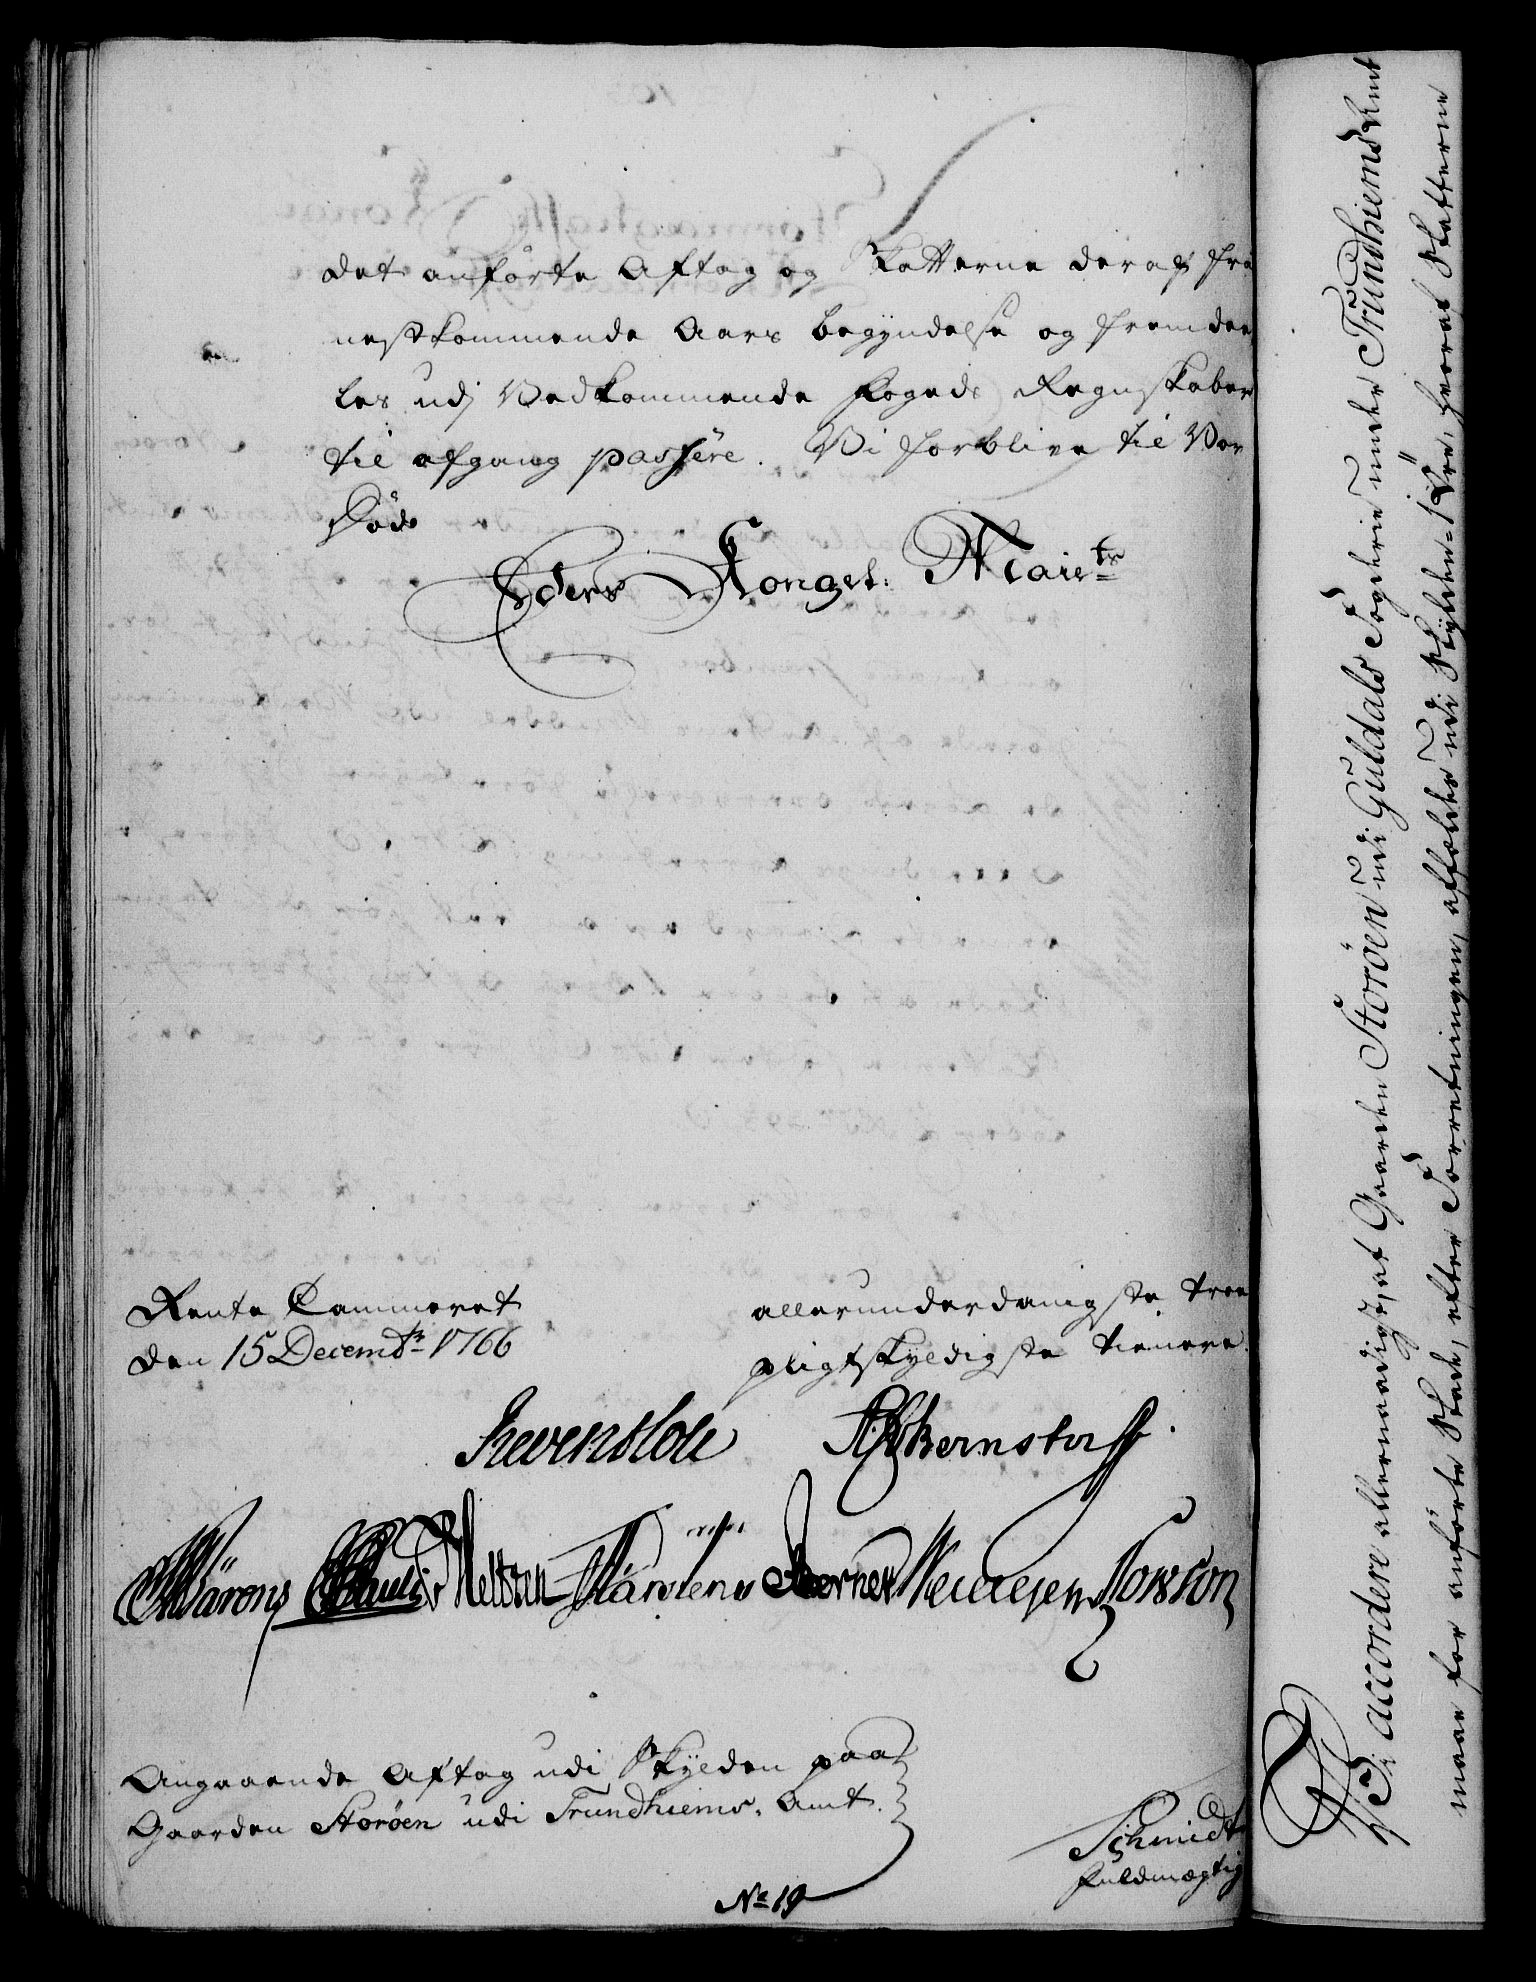 det anførte Aftag og Skatterne deraf fra
nestkommende Aars begyndelse og fremdee
les udj Vedkommende Fogeds Regnskaber
til afgang passere. Vi forblive til Vor
Død
Eders Kongel: Maiets
Rente Cammeret
den 15 Decembr 1766
allerunderdanigste troe
pligtskyldigste tienere.
Wärens Nelssen Kärstens Weinegen
Angaaende Aftag udi Skylden paa
Gaarden Storøen udi Trundhiems Amt.
Schmidt
Fuldmægtig
No 19
Vi accordere allernaadigst, at Gaarden Storøen udi Guldals Fogderie under Trundhiems Amt
maae for anførte Skade, efter Forretningen, aftældes udi Skylden 1 Øre, hvoraf Skatterne